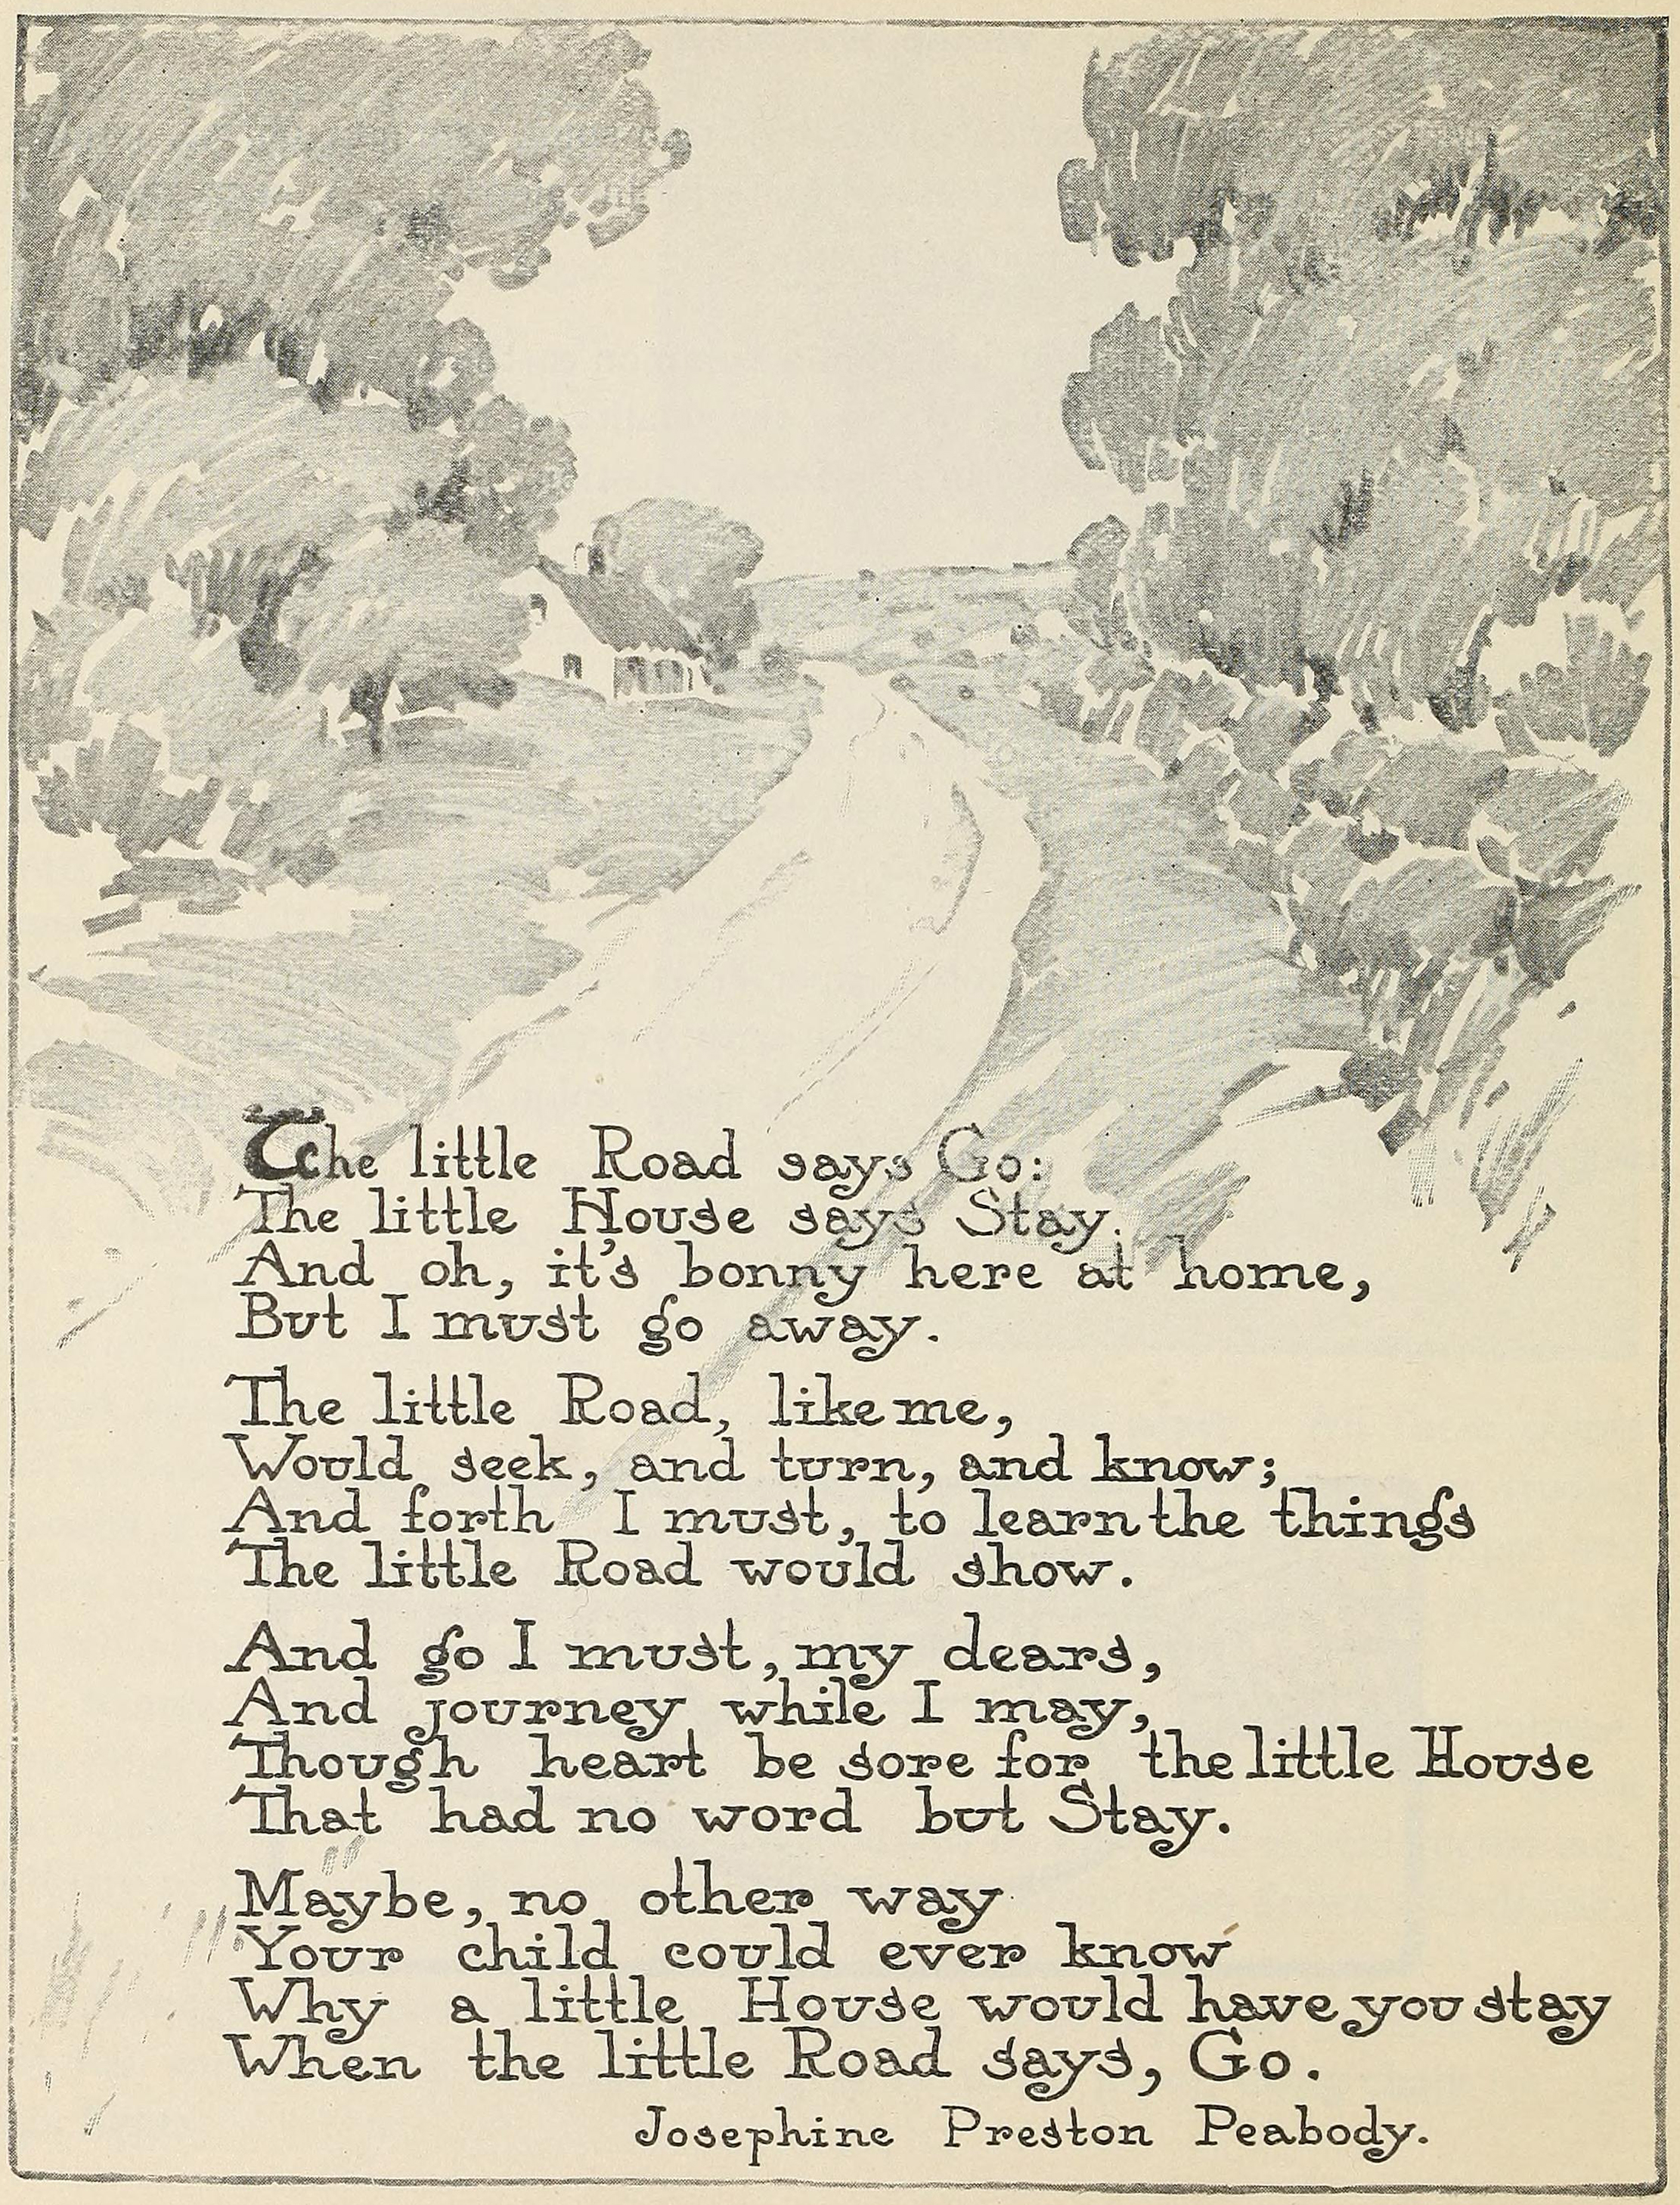 The little Road says Go:
The little House says Stay.
And oh, it's bonny here at home,
But I must go away.
The little Road, like me,
Would seek, and turn, and know;
And forth I must, to learn the things
The little Road would show.
And go I must, my dears,
And journey while I may,
Though heart be sore for the little House
That had no word but Stay.
Maybe, no other way
Your child could ever know
Why a little House would have you stay
When the little Road says, Go.
Josephine Preston Peabody.